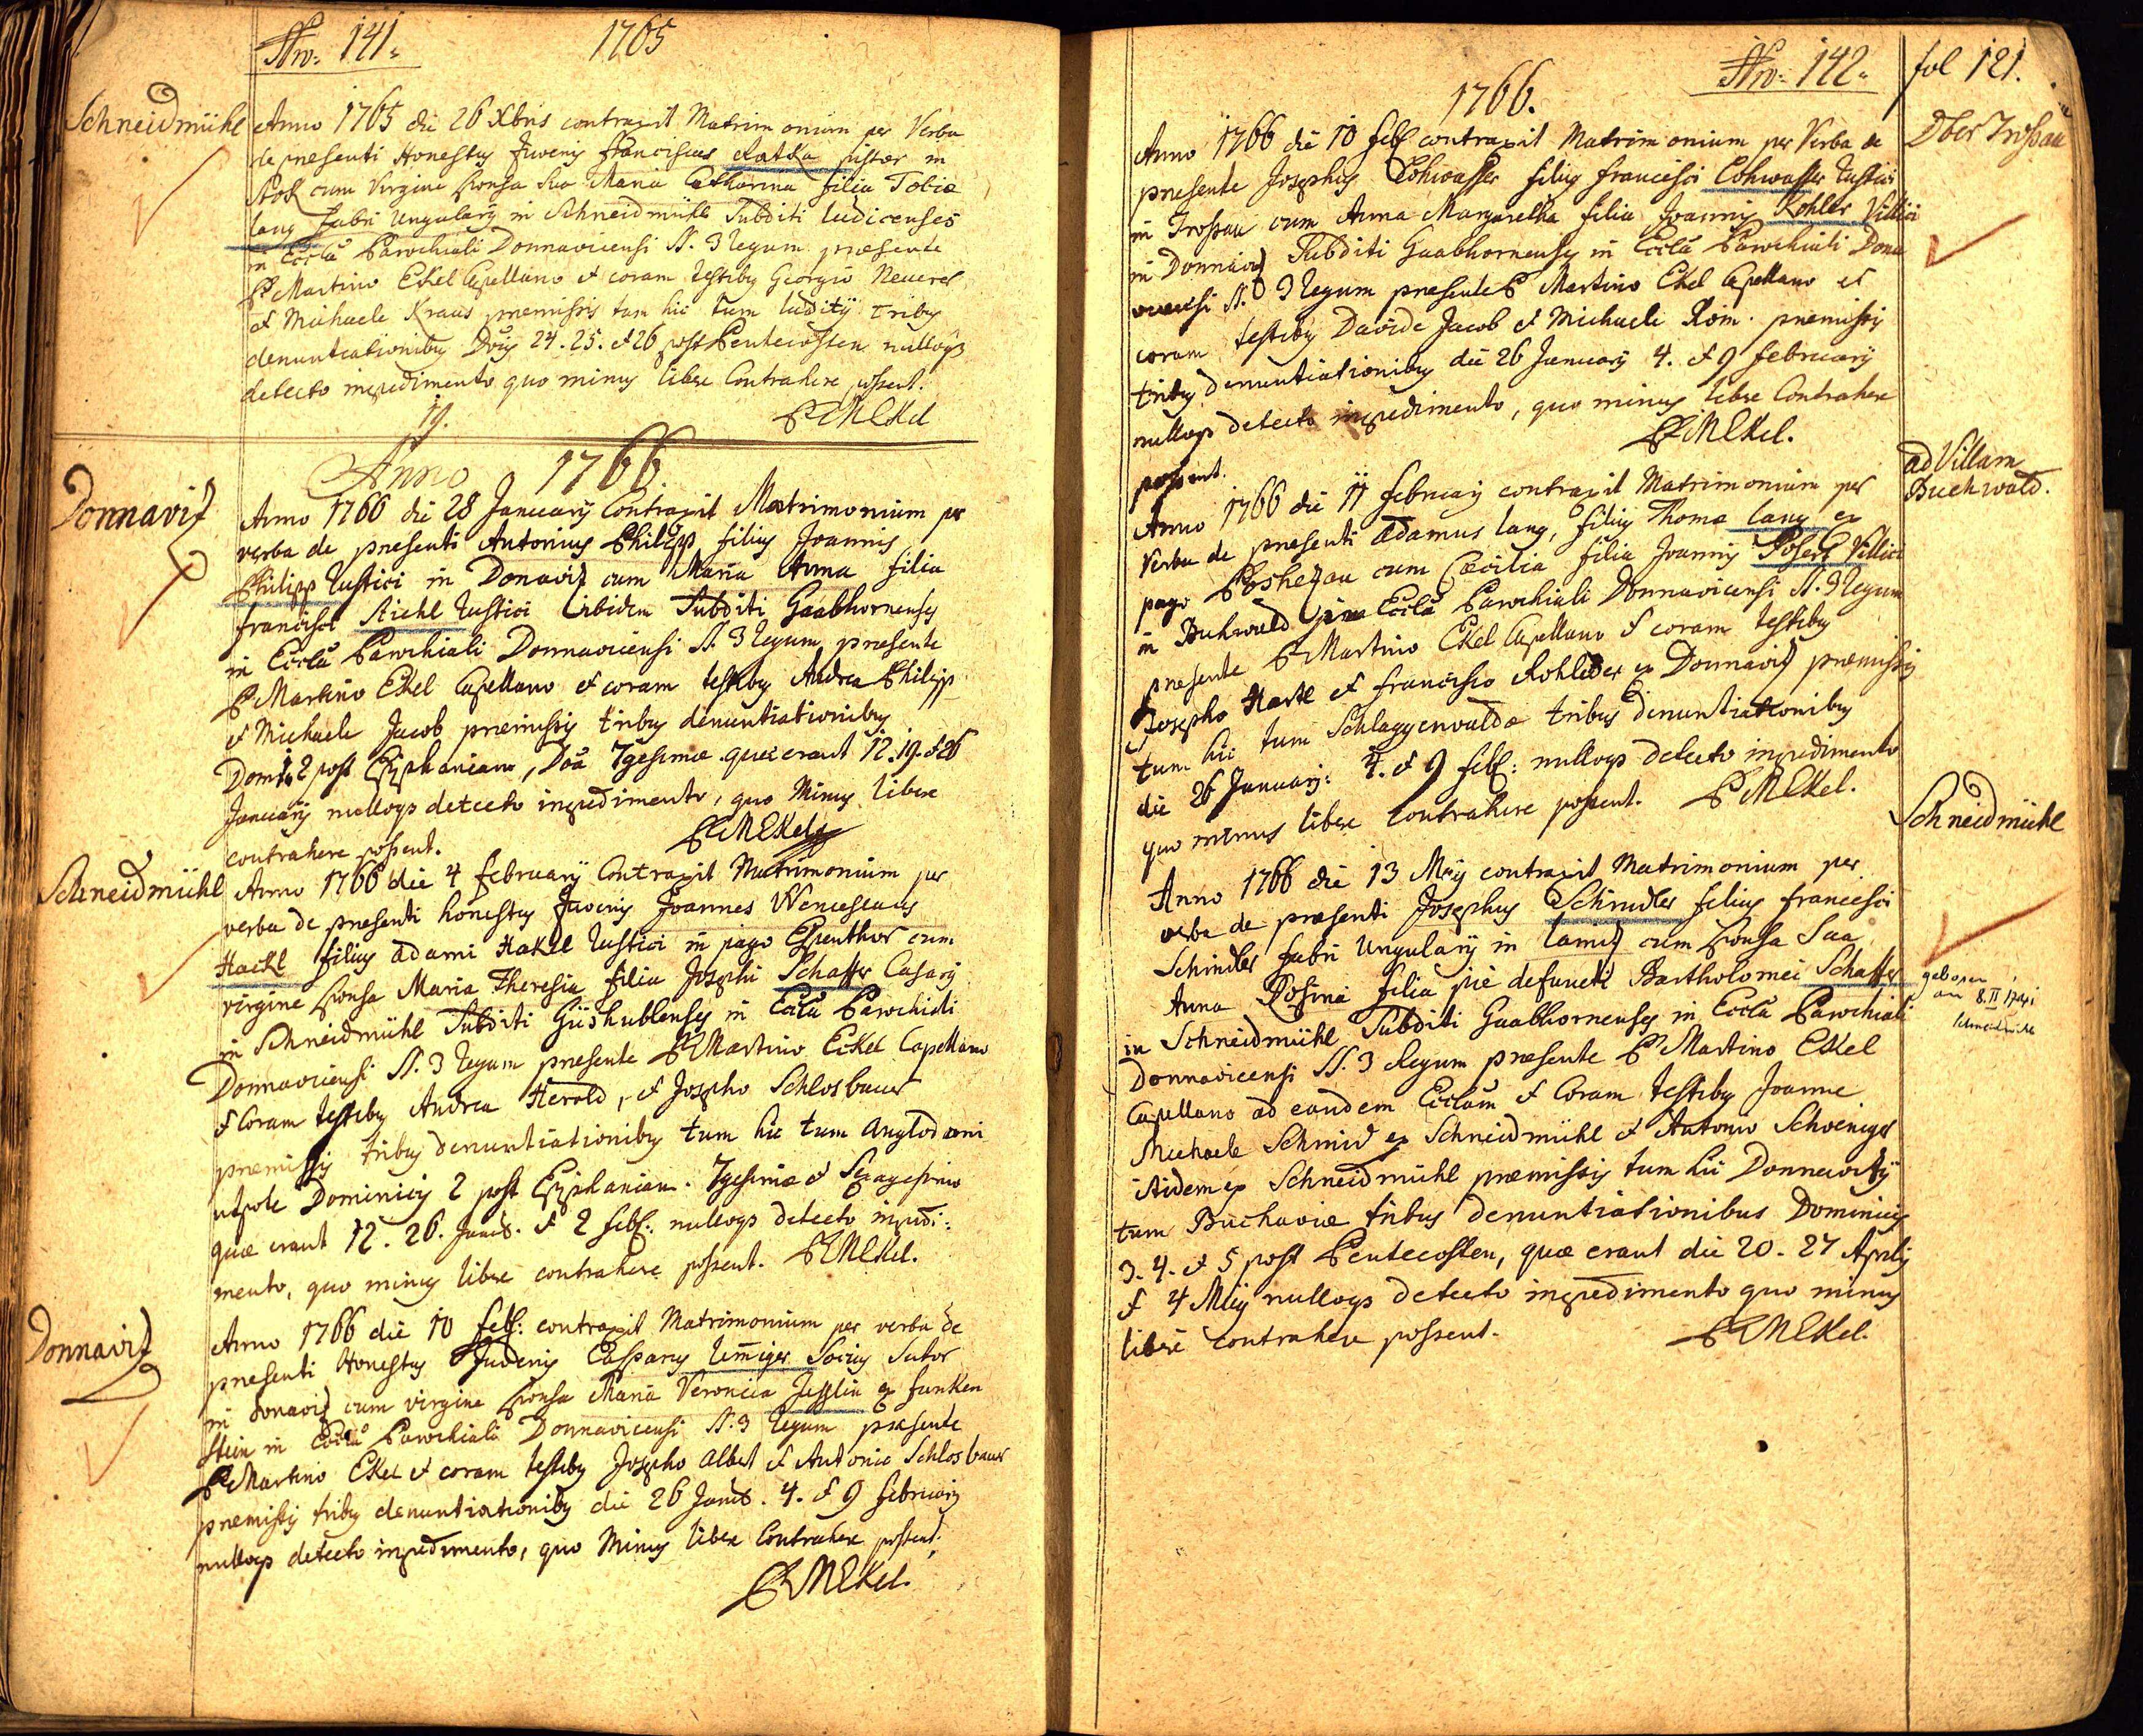 Nro: 141.
1765
Schneidmühl
Anno 1765 die 26 Xbris contraxit Matrimonium per Verba
de praesenti Honestus Juvenis Franciscus Ratka pistor in
cum Virgine Sponsa Sua Maria Catharina filia Tobiae
lang fabri Ungularij in Schneidmühl Subditi ludicenses
in Eccla Parochiali Donnavicensi SS. 3 Regum praesente
P. Martino Ekel Capellano et coram testibus Georgio Neuerel
et Michaele Kraus praemissis tum hic tum luditij tribus
denuntiationibus Dcis 24. 25. et 26 post Pentecosten nulloque
detecto impedimento quo minus libere Contrahere possent.
19.
P. M Ekel
Anno 1766
Donnaviz
Anno 1766 die 28 January Contraxit Matrimonium per
verba de praesenti Antonius Philipp filius Joannis
Philipp Rustici in Donaviz cum Maria Anna filia
Francisci Stiehl Rustici ibidem Subditi Gaabhornenses
in Eccla Parochiali Donnavicensi SS. 3 Regum praesente
P. Martino Ekel Capellano et coram testibus Andrea Philipp
et Michaele Jacob praemissis tribus denuntiationibus
Dom: 1. 2 post Epiphaniam, Dca 7gesimae quae erant 12. 19. et 26
January nulloque detecto impedimento, quo Minus libere
contrahere possent.
P. M Ekel
Schneidmühl
Anno 1766 die 4 february Contraxit Matrimonium per
verba de praesenti honestus Juvenis Joannes Wenceslaus
Hackl filius adami Hakll Rustici in pago Espenthor cum
virgine Sponsa Maria Theresia filia Josephi Schaffer Casarij
in Schneidmühl Subditi Giishublenses in Eccla Parochiali
Donnavicensi SS. 3 Regum presente P. Martino Eckel Capellano
et Coram testibus Andrea Herold, et Josepho Schlosbauer
praemissis tribus denuntiationibus tum hic tum Anglodroni
utpote Dominicis 2 post Epiphaniam. 7gesima et Sexagesima
quae erant 12. 26. Januar. et 2 feb: nulloque detecto impedi:
mento, quo minus libere contrahere possent. P. M Ekel.
Donnaviz
Anno 1766 die 10 feb: contraxit Matrimonium per verba de
presenti Honestus Juvenis Casparus Umiger Socius Sutor
in donaviz cum virgine Sponsa Maria Veronica Jesslin ex funken
stein in Eccla Parochiali Donnavicensi SS. 3 Regum praesente
P. Martino Ekel et coram testibus Josepho Albert et Antonio Schlosbauer
praemissis tribus denuntiationibus die 26 Januar. 4. et 9 february
nulloque detecto impedimento, quo Minus libere Contrahere possent.
P. M Ekel.
Nro: 142.
fol 121.
1766.
Ober Trossau
Anno 1766 die 10 feb contraxit Matrimonium per Verba de
presente Josephus Lohwasser filius francisci Lohwasser Rustici
in Trossau cum Anna Margaretha filia Joannis Kohler Villici
in Donnaviz Subditi Gaabhornenses in Eccla Parochiali Dona
vicensi SS. 3 Regum presente P. Martino Ekel Capellano et
coram testibus Davide Jacob et Michaele Röm. praemissis
tribus denuntiationibus die 26 January 4. et 9 february
nulloque detecto impedimento, quo minus libere Contrahere
possent.
P. M Ekel.
ad Villam
Buchwald.
Anno 1766 die 11 february contraxit Matrimonium per
Verba de praesenti Adamus lang, filius Thomae lang ex
pago Poshezau cum Caecilia filia Joannis Poserl Villici
in Buhwald in Eccla Parochiali Donnavicensi SS. 3 Regum
praesente P. Martino Ekel Capellano et coram testibus
Josepho Hartl et francisco Rohleder ex Donnaviz praemissis
tum hic tum Schlaggenwaldae tribus denuntiationibus
die 26 January: 4. et 9 feb: nulloque detecto impedimento
quo minus libere contrahere possent. P. M Ekel.
Schneidmühl
Anno 1766 die 13 May contraxit Matrimonium per
verba de praesenti Josephus Schindler filius francisci
Schindler fabri Ungularij in lamiz cum Sponsa Sua
Anna Rosina filia pie defuncti Bartholomei Schaffer
geboren
am 8. II 1741
Schneidmühl
in Schneidmühl Subditi Gaabhornenses in Eccla Parochiali
Donnavicensi SS. 3 Regum praesente P. Martino Ekel
Capellano ad eandem Ecclam et Coram testibus Joanne
Michaele Schmid ex Schneidmühl et Antonio Schoeniger
itidem ex Schneidmühl praemissis tum hic Donnavitij
tum Buchaviae tribus denuntiationibus Dominicis
3. 4. et 5 post Pentecosten, quae erant die 20. 27 Aprilis
et 4 May nulloque detecto impedimento quo minus
libere contrahere possent. P. M Ekel.